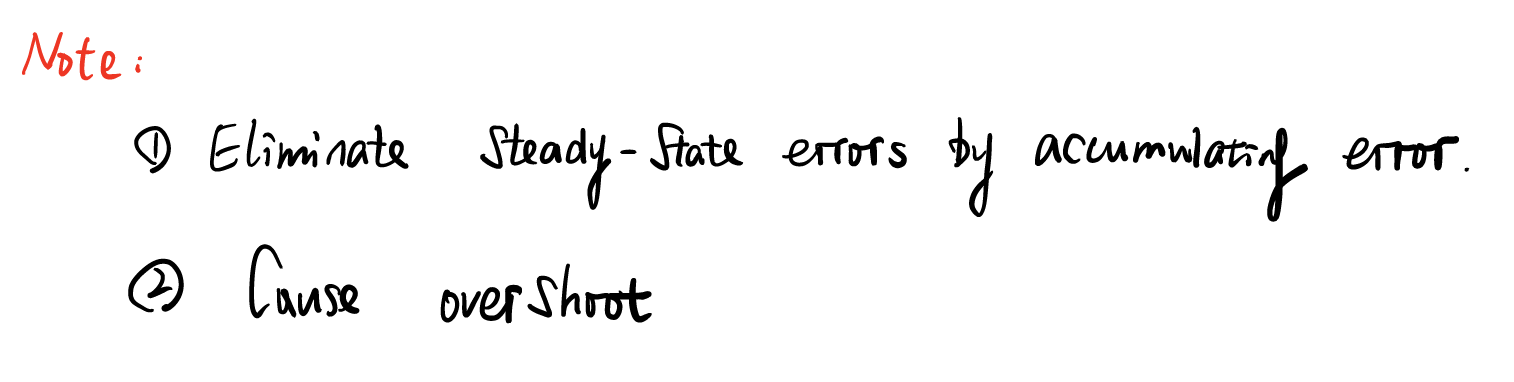 Note:
① Eliminate Steady-State errors by accumulating error.
② Cause overshoot